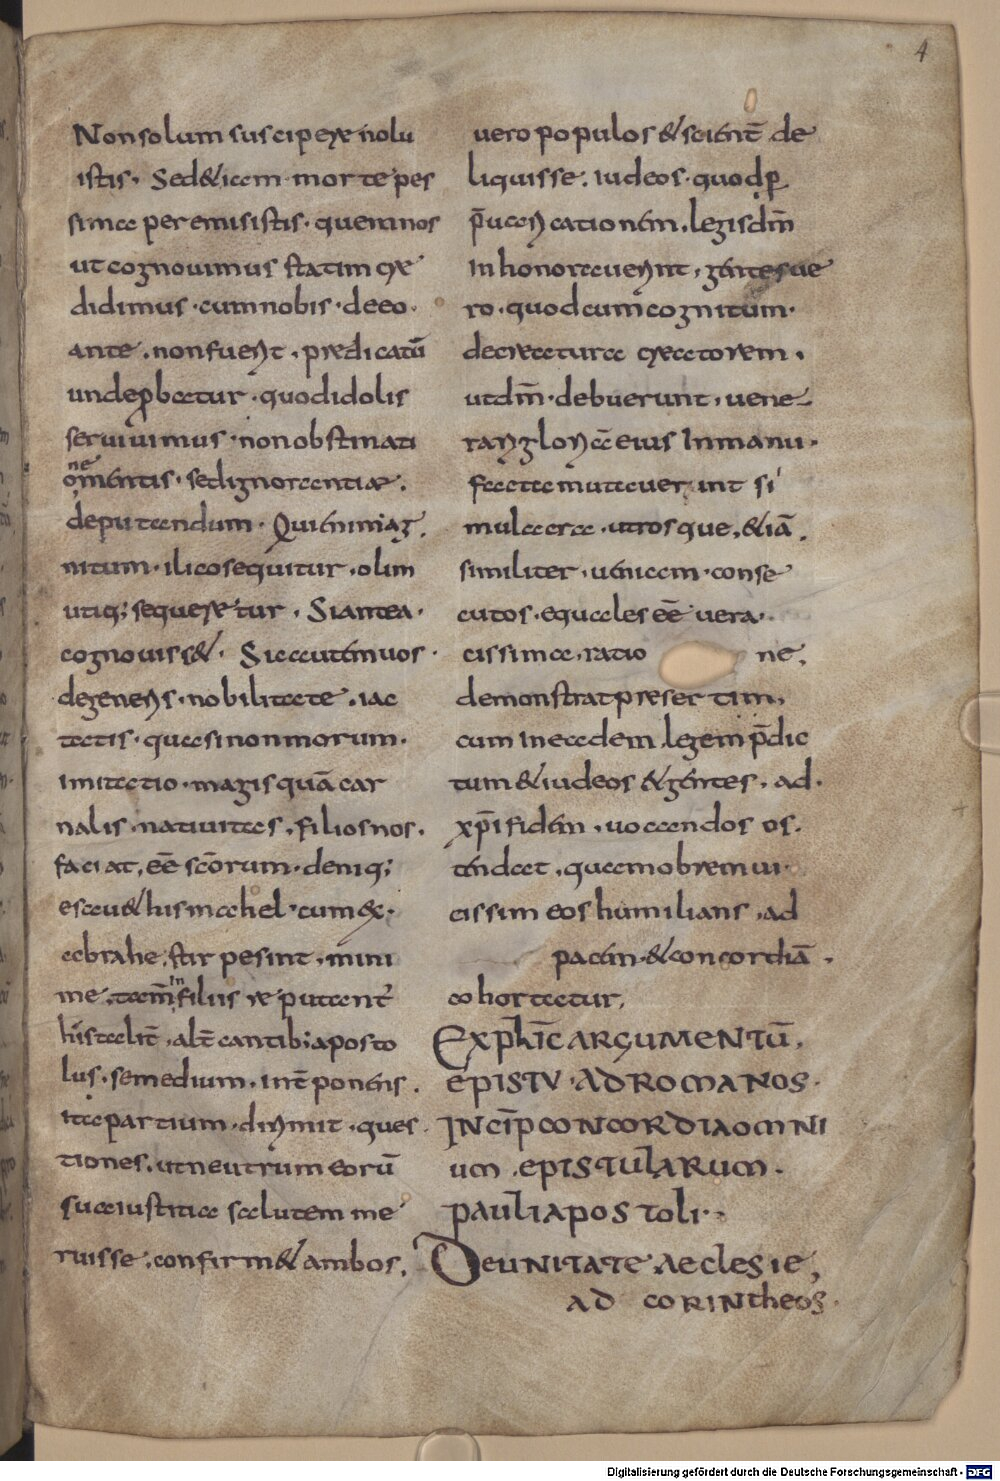 4
Non solum suscipere nolu
istis. Sed & iam morte pes
sima peremisistis. quem nos
ut cognouimus statim cre
didimus. cum nobis. de eo.
ante. non fuerit. predicatū
unde ꝓbatur. quod idolis
seruiuimus. non obstinati
one mentis. sed ignorantiae.
deputandum. Qui enim ag
nitum. ilico sequitur. olim
utiq; sequeretur. Si antea.
cognouiss&. Sic autem uos.
de generis. nobilitate. iac
tatis. quasi non morum.
imitatio. magis quā car
nalis. natiuitas. filios nos.
faciat. eē scōrum. deniq;
esau & hismahel. cum ex.
abrahe. stirpe sint. mini
me. tam̄ in filiis reputant̄
his talit̄. alt̄cantib; aposto
lus. se medium. int̄ponens.
ita partium. dirimit. ques
tiones. ut neutrum eorū
sua iustitia salutem me
ruisse. confirm& ambos.
uero populos & scient̄ de
liquisse. iudeos. quod ꝑ
p̄uaricationem. legis dm̄
inhonorauerint. gentes ue
ro. quod cum cognitum.
de creatura creatorem.
ut dm̄. debuerunt. uene
rari gloriā eius In manu.
facta mutauerunt si
mulacra. utrosque. & iā.
similiter. ueniam. conse
cutos. equales eē uera.
cissima. ratio ne.
demonstrat presertim.
cum in eadem legem p̄dic
tum & iudeos & gentes. ad.
xp̄i fidem. uocandos os.
tendat. quam obrem ui
cissim eos humilians. ad
pacem. & concordiā.
cohortatur.
Explic̄ ARGUMENTŪ.
EPISTU. AD ROMANOS.
INCIP̄ CONCORDIA OMNI
UM. EPISTULARUM.
PAULI APOSTOLI.
DE UNITATE AECLESIE,
AD CORINTHEOS.
Digitalisierung gefördert durch die Deutsche Forschungsgemeinschaft - DFG